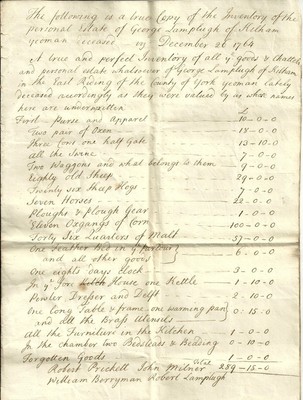 The following is a true Copy of the Inventory of the
personal Estate of George Lamplugh of Kelham
yeoman deceased December 26 1764
A true and perfect Inventory of all ye goods & Chattels
and personal estate whatsoever of George Lamplugh of Kelham
in the East Riding of the County of York yeoman lately
deceased accordingly as they were valued by us whose names
here are underwritten
First Purse and Apparel 10-0-0
Two pair of Oxen 18-0-0
Three four one half Gate 13-10-0
all the Swine 7-0-0
Two Waggons and what belongs to them 9-0-0
Eighty old Sheep 29-0-0
Twenty six Sheep Hogs 7-0-0
Seven Horses 22-0-0
Ploughs & plough Gear 1-0-0
Eleven Oxgangs of Corn 100-0-0
Forty Six Quarters of Malt 37-0-0
One Feather Bed in ye Parlour
and all other goods 6-0-0
One eight days Clock 3-0-0
In ye Fore House one Kettle 1-10-0
Pewter Dresser and Delft 2-10-0
One long Table & frame one warming pan
and all the Brass Utensils 0-15-0
all the Furniture in the Kitchen 1-0-0
In the chamber two Bedsteads & Bedding 0-10-0
Forgotten Goods 1-0-0
Total 289-15-0
Robert Prickett John Milner
William Berryman Robert Lamplugh